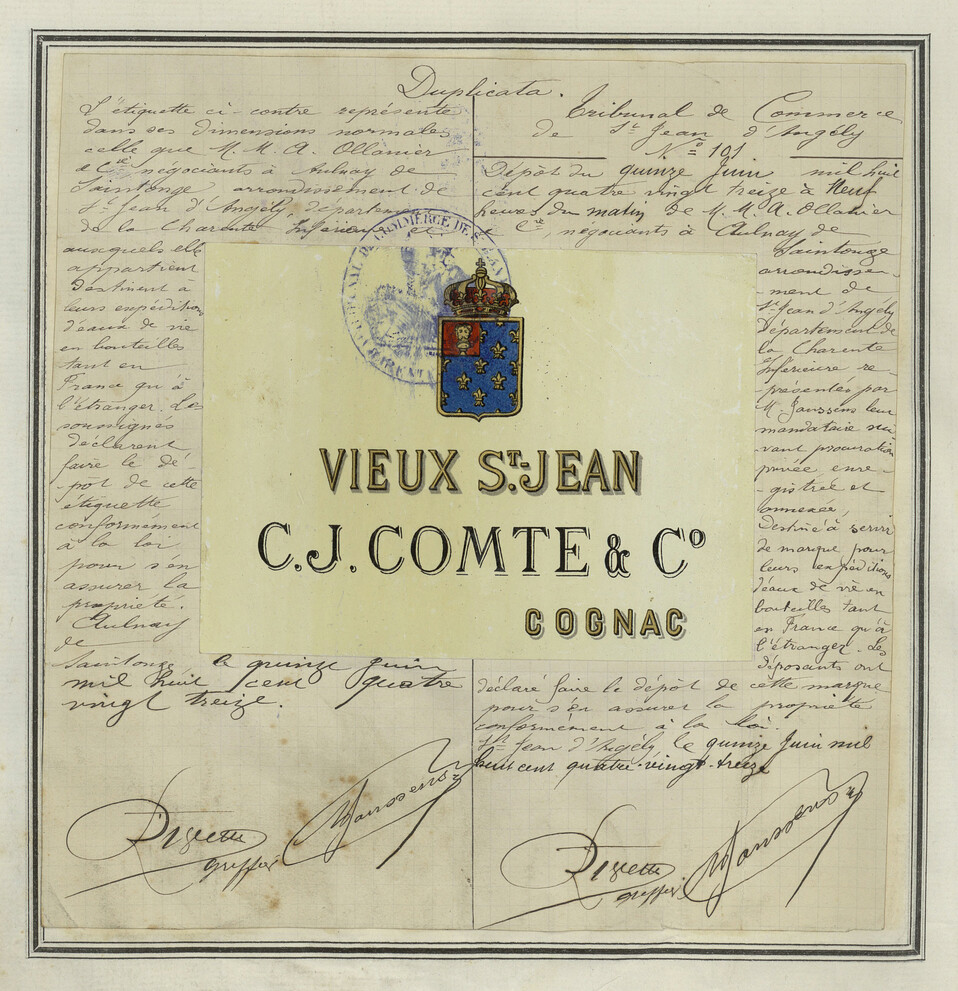 Duplicata.
L'étiquette ci-contre représente
dans ses dimensions normales
celle que M.M. A. Ollanier
& Cie négociants à Aulnay de
Saintonge arrondissement de
St Jean d'Angély, département
de la Charente Inférieure et
auxquels elle
appartient
destinent à
leurs expéditions
d'eaux de vie
en bouteilles
tant en
France qu'à
l'étranger. Les
soussignés
déclarent
faire le dé-
pôt de cette
étiquette
conformément
à la loi
pour s'en
assurer la
propriété.
Aulnay
de
Saintonge, le quinze juin
mil huit cent quatre
vingt treize.
greffier
Janssens
Tribunal de Commerce
de St Jean d'Angély
No 101
Dépôt du quinze Juin mil huit
cent quatre vingt treize à Neuf
heures du matin de M.M. A. Ollanier
& Cie, négociants à Aulnay de
Saintonge
arrondisse-
-ment de
St Jean d'Angély
Département de
la Charente
Inférieure re-
présentés par
M. Janssens leur
mandataire sui-
vant procuration
privée enre-
-gistrée et
annexée,
Destiné à servir
de marque pour
leurs expéditions
d'eaux de vie en
bouteilles tant
en France qu'à
l'étranger. Les
déposants ont
déclaré faire le dépôt de cette marque
pour s'en assurer la propriété
conformément à la loi.
St Jean d'Angély le quinze Juin mil
huit cent quatre-vingt-treize
greffier
Janssens
TRIBUNAL DE COMMERCE DE ST JEAN
VIEUX ST.-JEAN
C.J. COMTE & Co
COGNAC